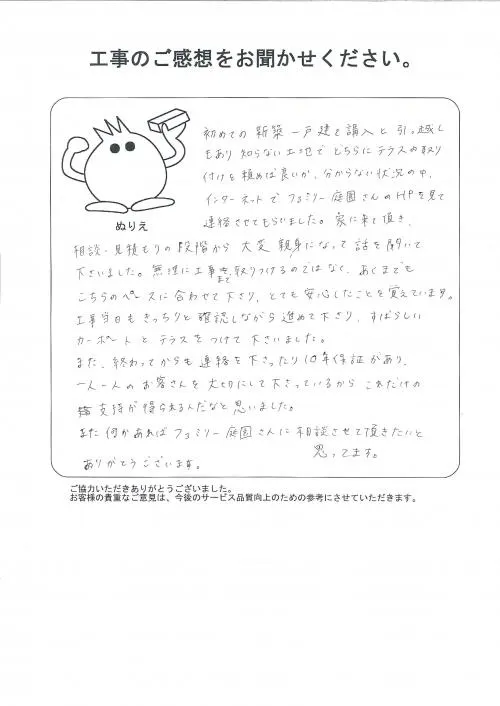 工事のご感想をお聞かせください。
初めての新築一戸建を購入と引っ越し
もあり知らない土地でどちらにテラスの取り
付けを頼めば良いか、分からない状況の中、
インターネットでファミリー庭園さんのHPを見て
連絡させてもらいました。家に来て頂き、
ぬりえ
相談・見積もりの段階から大変親身になって話を聞いて
下さいました。無理に工事まで取りつけるのではなく、あくまでも
こちらのペースに合わせて下さり、とても安心したことを覚えています。
工事当日もきっちりと確認しながら進めて下さり、すばらしい
カーポートとテラスをつけて下さいました。
また、終わってからも連絡を下さったり10年保証があり、
一人一人のお客さんを大切にして下さっているからこれだけの
支持が得られるんだなと思いました。
また何かあればファミリー庭園さんに相談させて頂きたいと
思ってます。
ありがとうございます。
ご協力いただきありがとうございました。
お客様の貴重なご意見は、今後のサービス品質向上のための参考にさせていただきます。